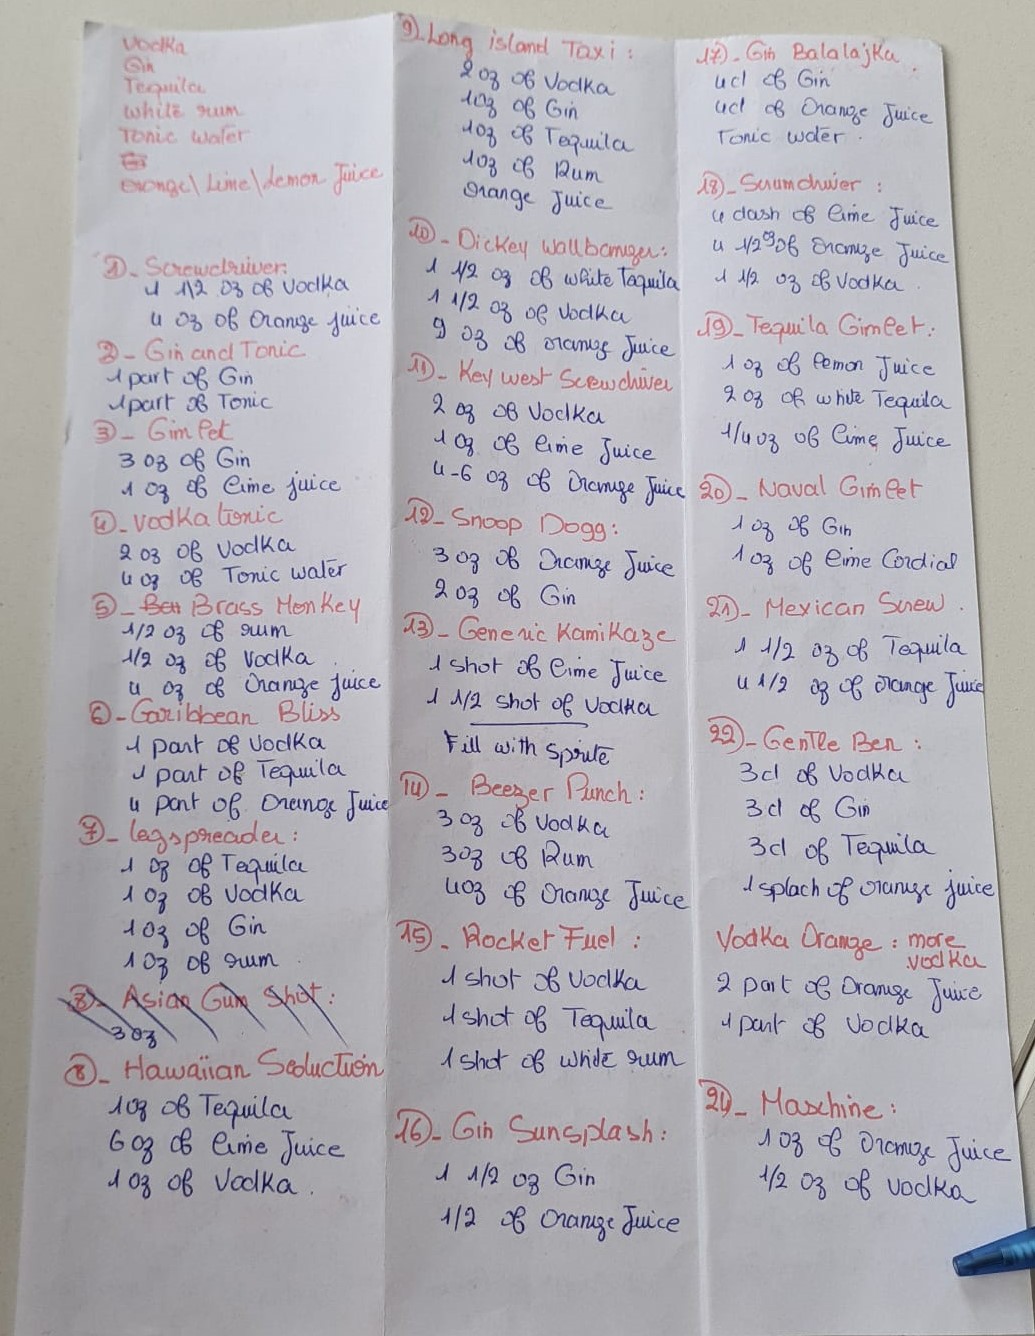 Vodka
Gin
Tequila
white rum
Tonic water
Orange\Lime\Lemon Juice
1)- Screwdriver:
1 1/2 oz of Vodka
4 oz of Orange juice
2)- Gin and Tonic
1 part of Gin
1 part of Tonic
3)- Gimlet
3 oz of Gin
1 oz of lime juice
4)- Vodka tonic
2 oz of Vodka
4 oz of Tonic water
5)- Brass Monkey
1/2 oz of rum
1/2 oz of Vodka
4 oz of Orange juice
6)- Caribbean Bliss
1 part of Vodka
1 part of Tequila
4 part of Orange Juice
7)- legspreader:
1 oz of Tequila
1 oz of Vodka
1 oz of Gin
1 oz of rum
8)- Asian Gum Shot:
3 oz
8)- Hawaiian Seduction
1 oz of Tequila
6 oz of lime Juice
1 oz of Vodka.
9)- Long island Taxi:
2 oz of Vodka
1 oz of Gin
1 oz of Tequila
1 oz of Rum
Orange Juice
10)- Dickey Wallbanger:
1 1/2 oz of white Tequila
1 1/2 oz of Vodka
9 oz of orange Juice
11)- Key west Screwdriver
2 oz of Vodka
1 oz of lime Juice
4-6 oz of Orange Juice
12)- Snoop Dogg:
3 oz of Orange Juice
2 oz of Gin
13)- Generic Kamikaze
1 shot of lime Juice
1 1/2 shot of Vodka
Fill with sprite
14)- Beezer Punch:
3 oz of Vodka
3 oz of Rum
4 oz of Orange Juice
15)- Rocket Fuel:
1 shot of Vodka
1 shot of Tequila
1 shot of white rum
16)- Gin Sunsplash:
1 1/2 oz Gin
1/2 of Orange Juice
17)- Gin Balalajka.
4cl of Gin
4cl of Orange Juice
Tonic water.
18)- Scumdriver:
4 dash of lime Juice
4 1/2 oz of Orange Juice
1 1/2 oz of Vodka.
19)- Tequila Gimlet:
1 oz of lemon Juice
2 oz of white Tequila
1/4 oz of lime Juice
20)- Naval Gimlet
1 oz of Gin
1 oz of lime Cordial
21)- Mexican Screw.
1 1/2 oz of Tequila
4 1/2 oz of orange Juice
22)- Gentle Ben:
3cl of Vodka
3cl of Gin
3cl of Tequila
1 splach of orange juice
Vodka Orange: more vodka
2 part of Orange Juice
1 part of Vodka
24)- Maschine:
1 oz of Orange Juice
1/2 oz of vodka